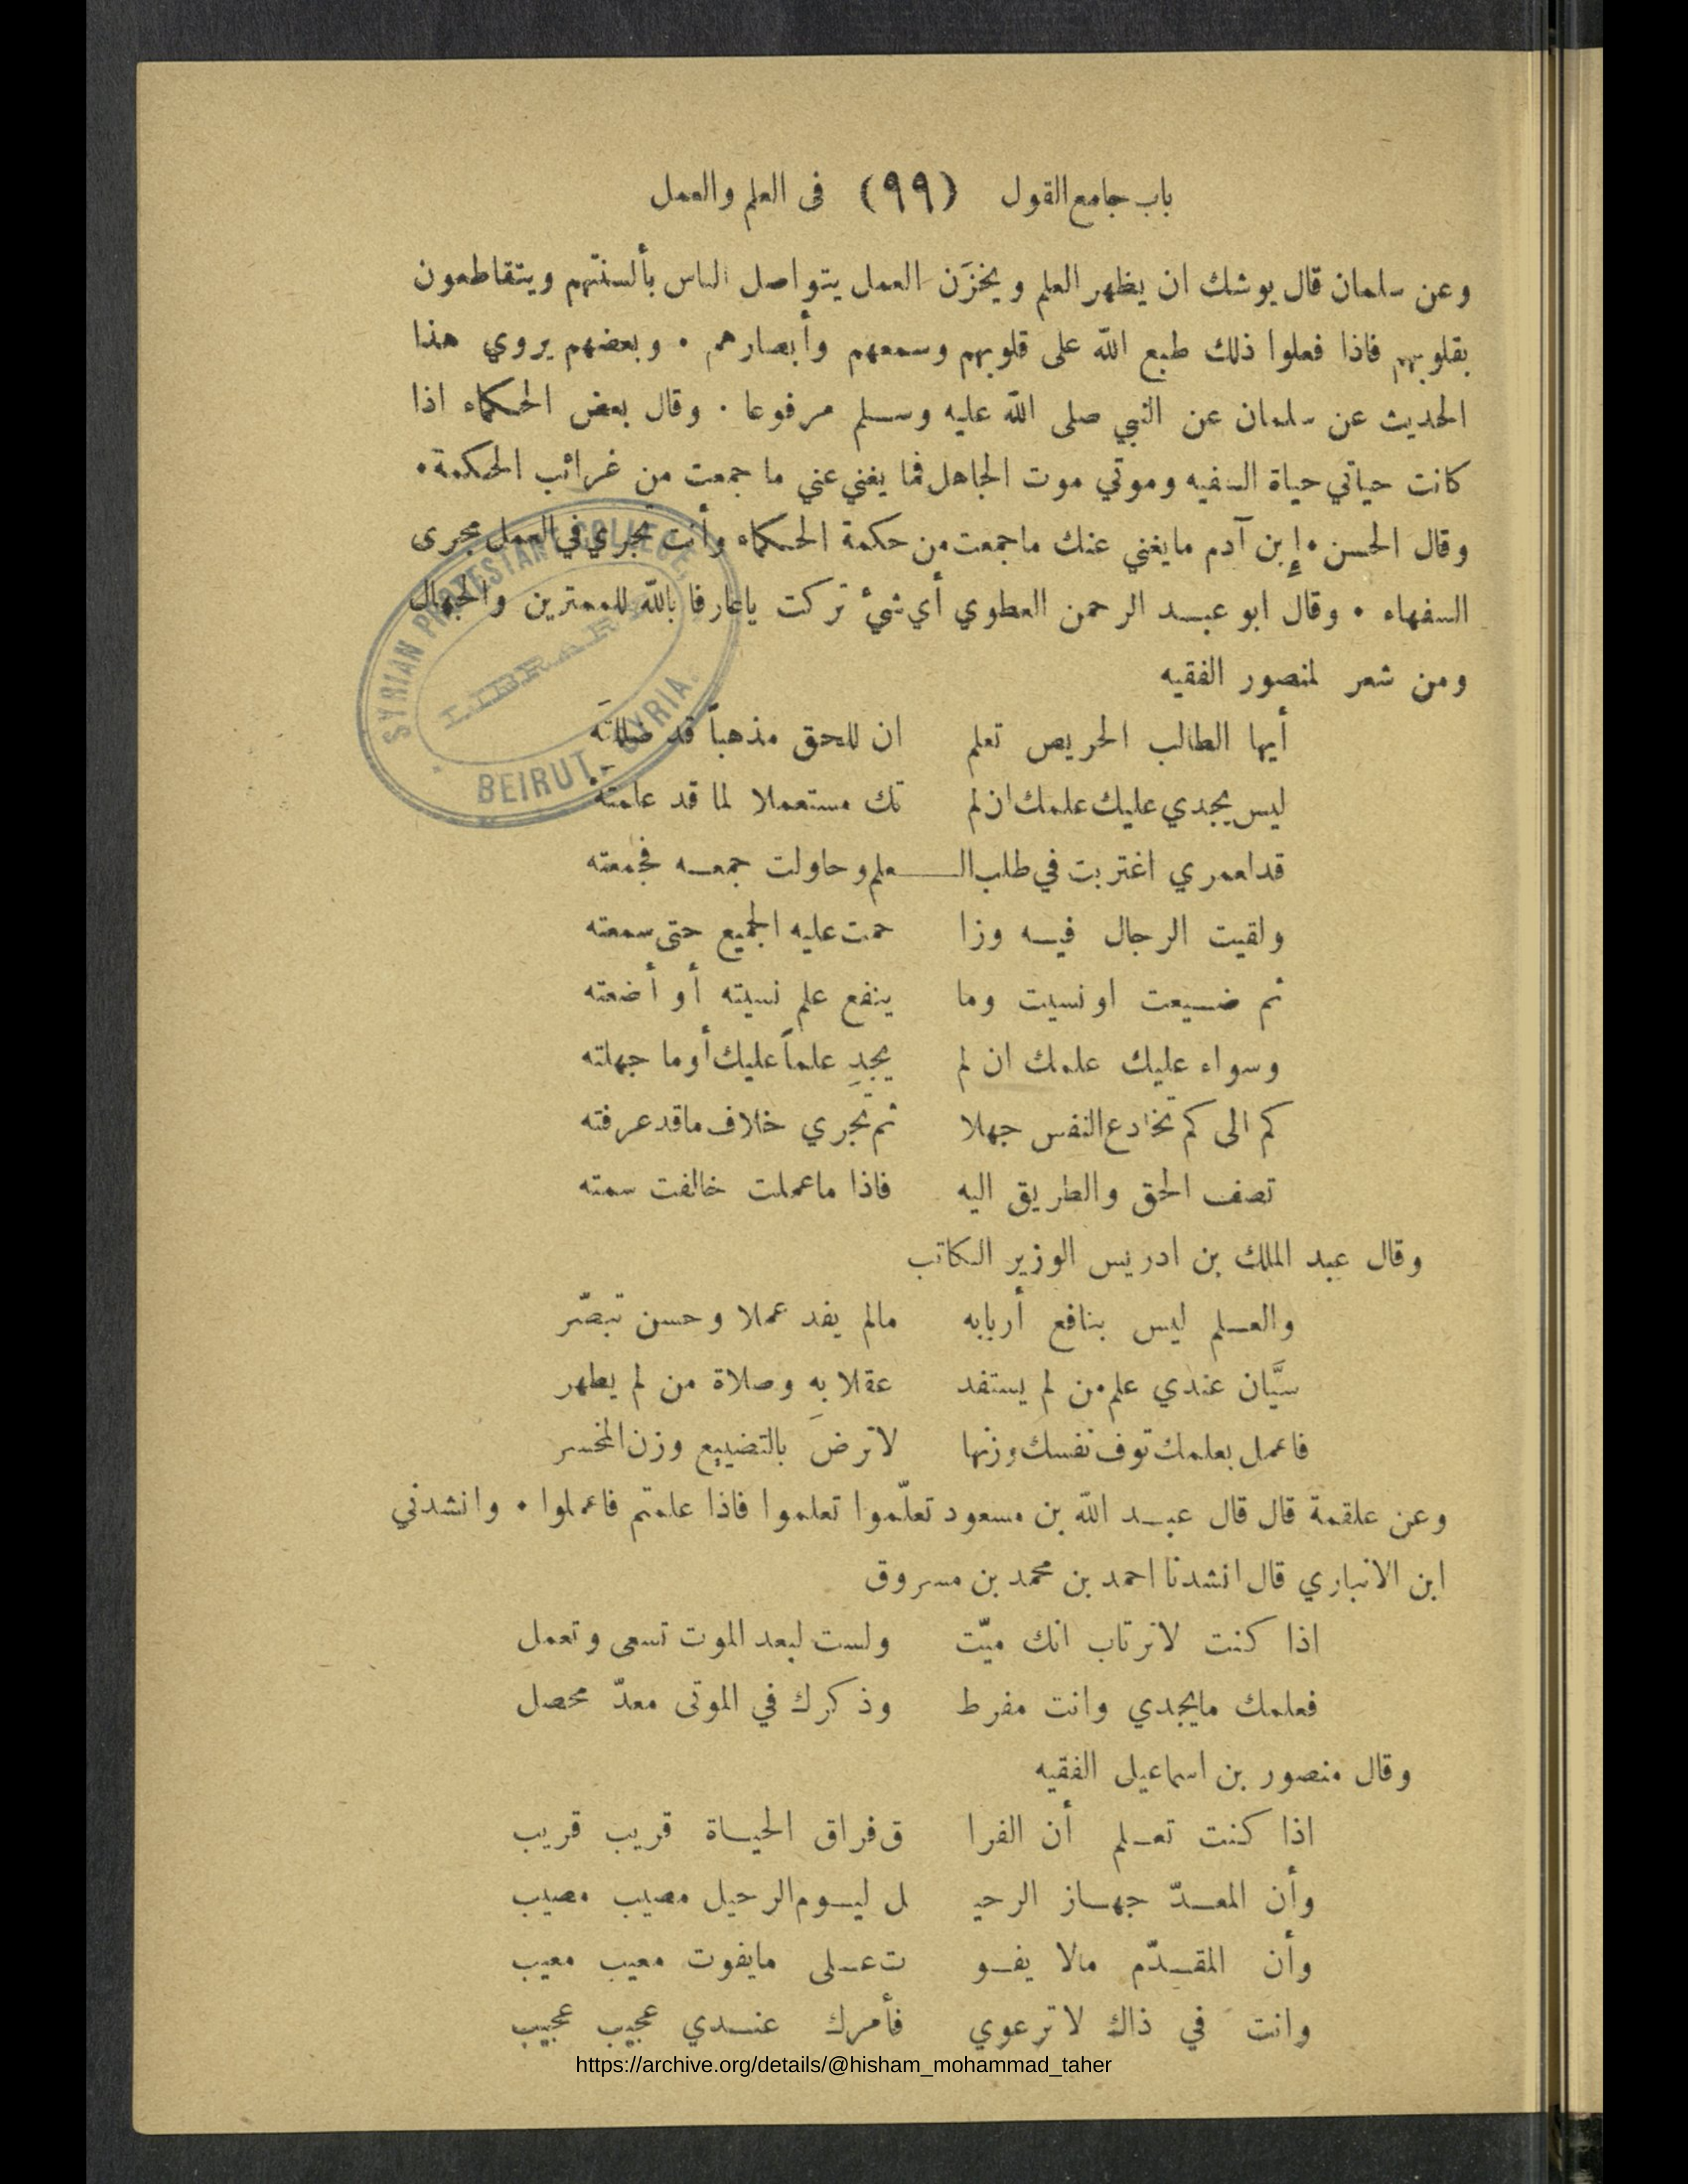 باب جامع القول (٩٩) فى العلم والعمل
وعن سلمان قال يوشك ان يظهر العلم ويخزَن العمل يتواصل الناس بألسنتّهم ويتقاطعون
بقلوبهم فاذا فعلوا ذلك طبع الله على قلوبهم وسمعهم وأبصارهم . وبعضهم يروي هذا
الحديث عن سلمان عن النبي صلى الله عليه وسلم مرفوعا . وقال بعض الحكماء اذا
كانت حياتي حياة السفيه وموتي موت الجاهل فما يغني عني ما جمعت من غرائب الحكمة .
وقال الحسن . إبن آدم مايغني عنك ماجمعت من حكمة الحكماء وأنت تجري في العمل مجرى
السفهاء . وقال ابو عبد الرحمن العطوي أي شيء تركت ياعارفا بالله للممترين والجهال
ومن شعر لمنصور الفقيه
أيها الطالب الحريص تعلم ان للحق مذهباً قد ضللتَه
ليس يجدي عليك علمك ان لم تك مستعملا لما قد علمته
قد لعمري اغتربت في طلب الـ ـعلم وحاولت جمعه فجمعته
ولقيت الرجال فيه وزا حمت عليه الجميع حتى سمعته
ثم ضيعت او نسيت وما ينفع علم نسيته أو أضعته
وسواء عليك علمك ان لم يجدِ علماً عليك أوما جهلته
كم الى كم تخادع النفس جهلا ثم تجري خلاف ماقد عرفته
تصف الحق والطريق اليه فاذا ماعملت خالفت سمته
وقال عبد الملك بن ادريس الوزير الكاتب
والعلم ليس بنافع أربابه مالم يفد عملا وحسن تبصّر
سيَّان عندي علم من لم يستفد عقلا بهِ وصلاة من لم يطهر
فاعمل بعلمك توف نفسك وزنها لاترضَ بالتضييع وزن المخسر
وعن علقمة قال قال عبد الله بن مسعود تعلّموا تعلموا فاذا علمتم فاعملوا . وانشدني
ابن الانباري قال انشدنا احمد بن محمد بن مسروق
اذا كنت لاترتاب انك ميّت ولست لبعد الموت تسعى وتعمل
فعلمك مايجدي وانت مفرط وذكرك في الموتى معدّ محصل
وقال منصور بن اسماعيلى الفقيه
اذا كنت تعلم أن الفرا ق فراق الحياة قريب قريب
وأن المعدّ جهاز الرحيـ ل ليوم الرحيل مصيب مصيب
وأن المقدّم مالا يفو ت على مايفوت معيب معيب
وانت في ذاك لاترعوي فأمرك عندي عجيب عجيب
SYRIAN PROTESTANT COLLEGE.
LIBRARY
BEIRUT, SYRIA.
https://archive.org/details/@hisham_mohammad_taher